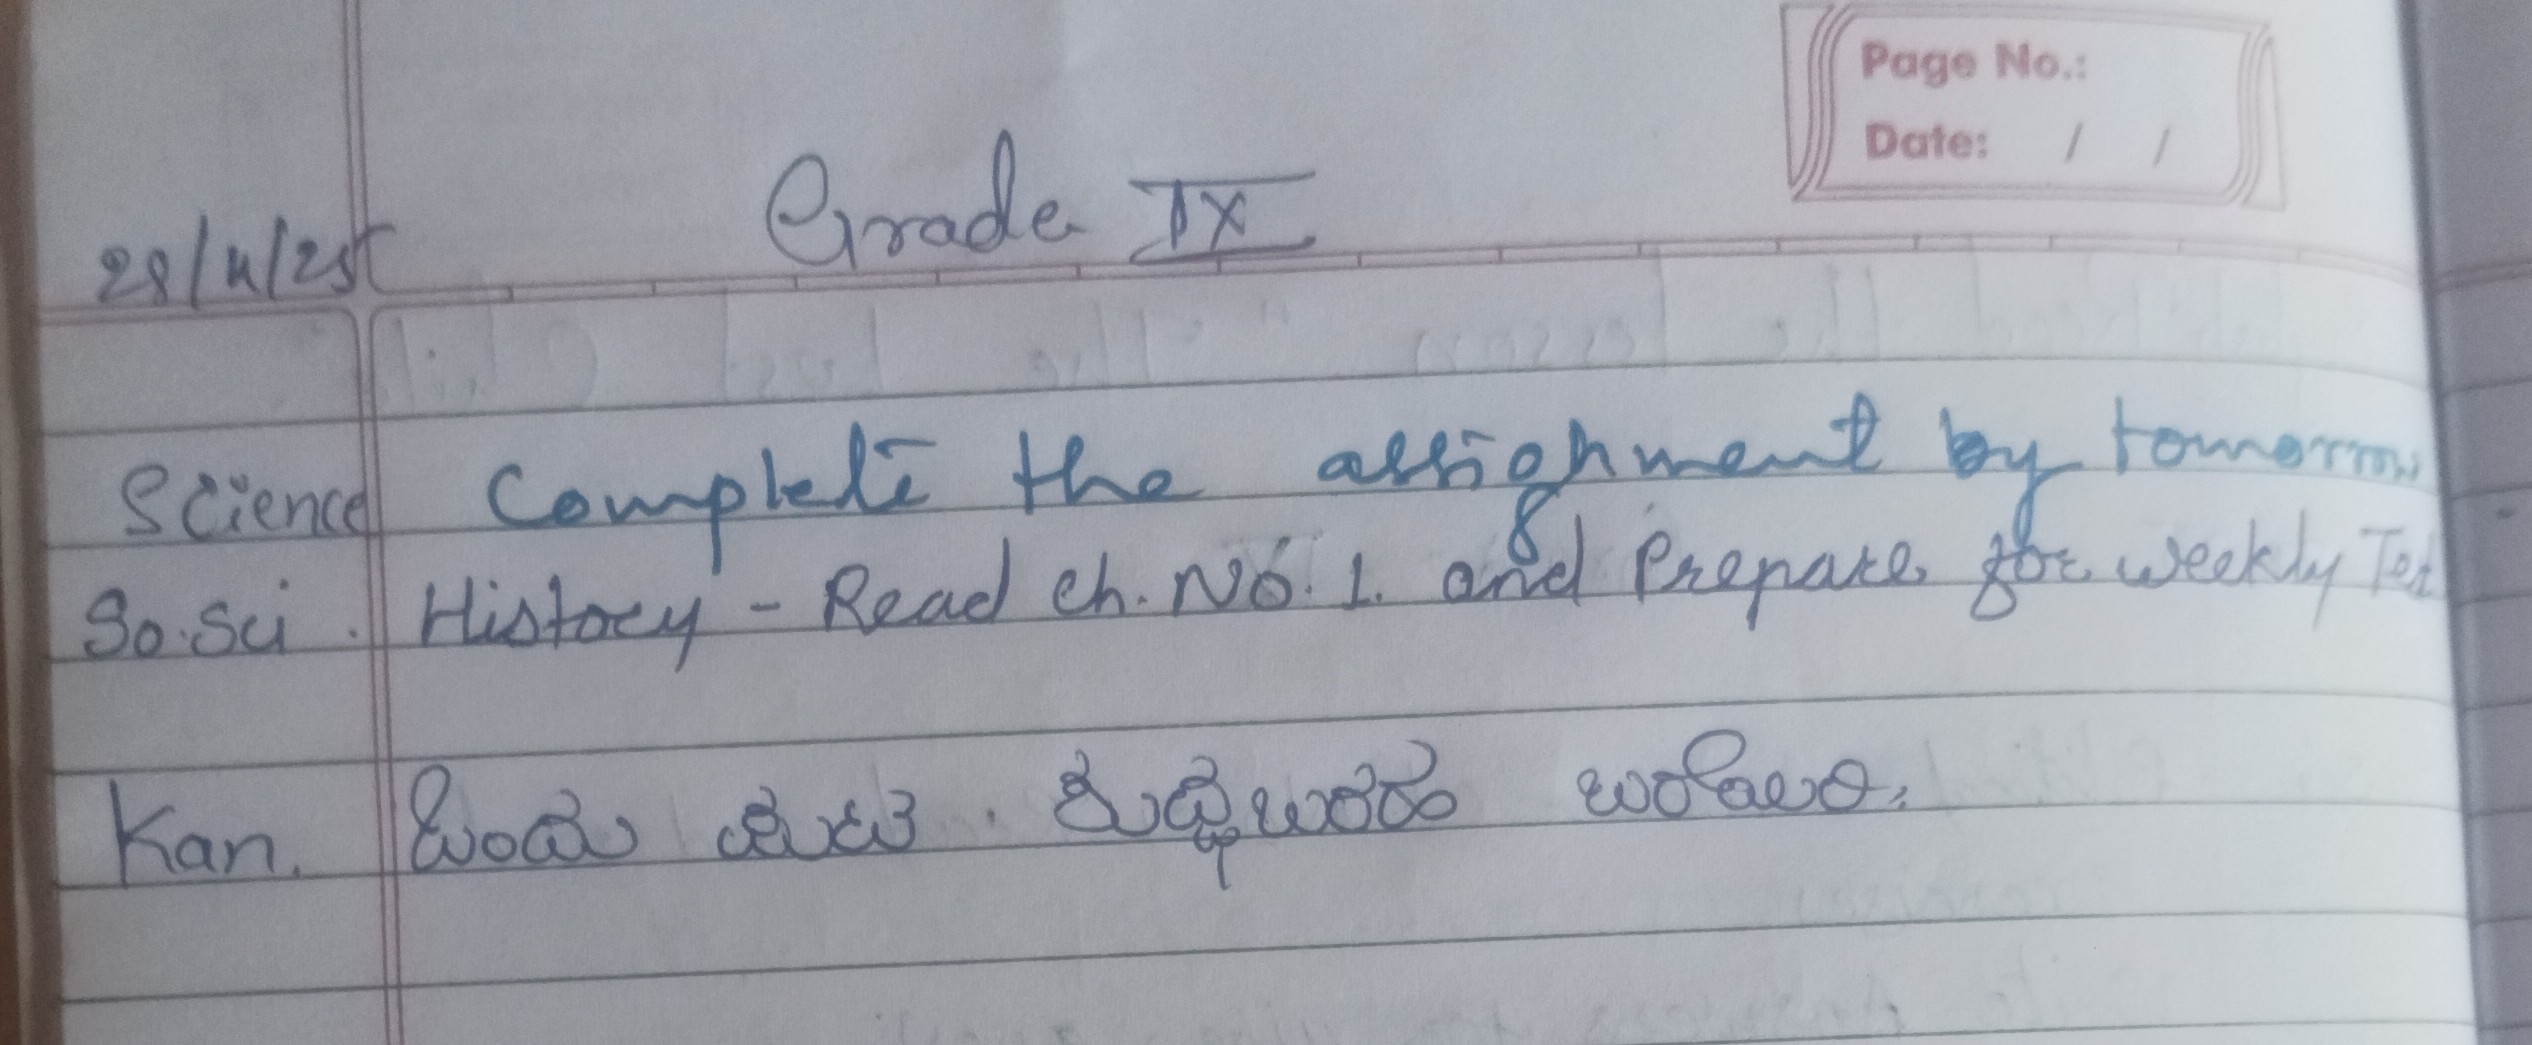 Page No.:
Date: / /
Grade IX
28/11/25
Science Complete the assignment by tomorrow
So.Sci. History - Read ch. No. 1. and Prepare for weekly Test
Kan. ಒಂದು ಪುಟ. ಶುದ್ಧಬರಹ